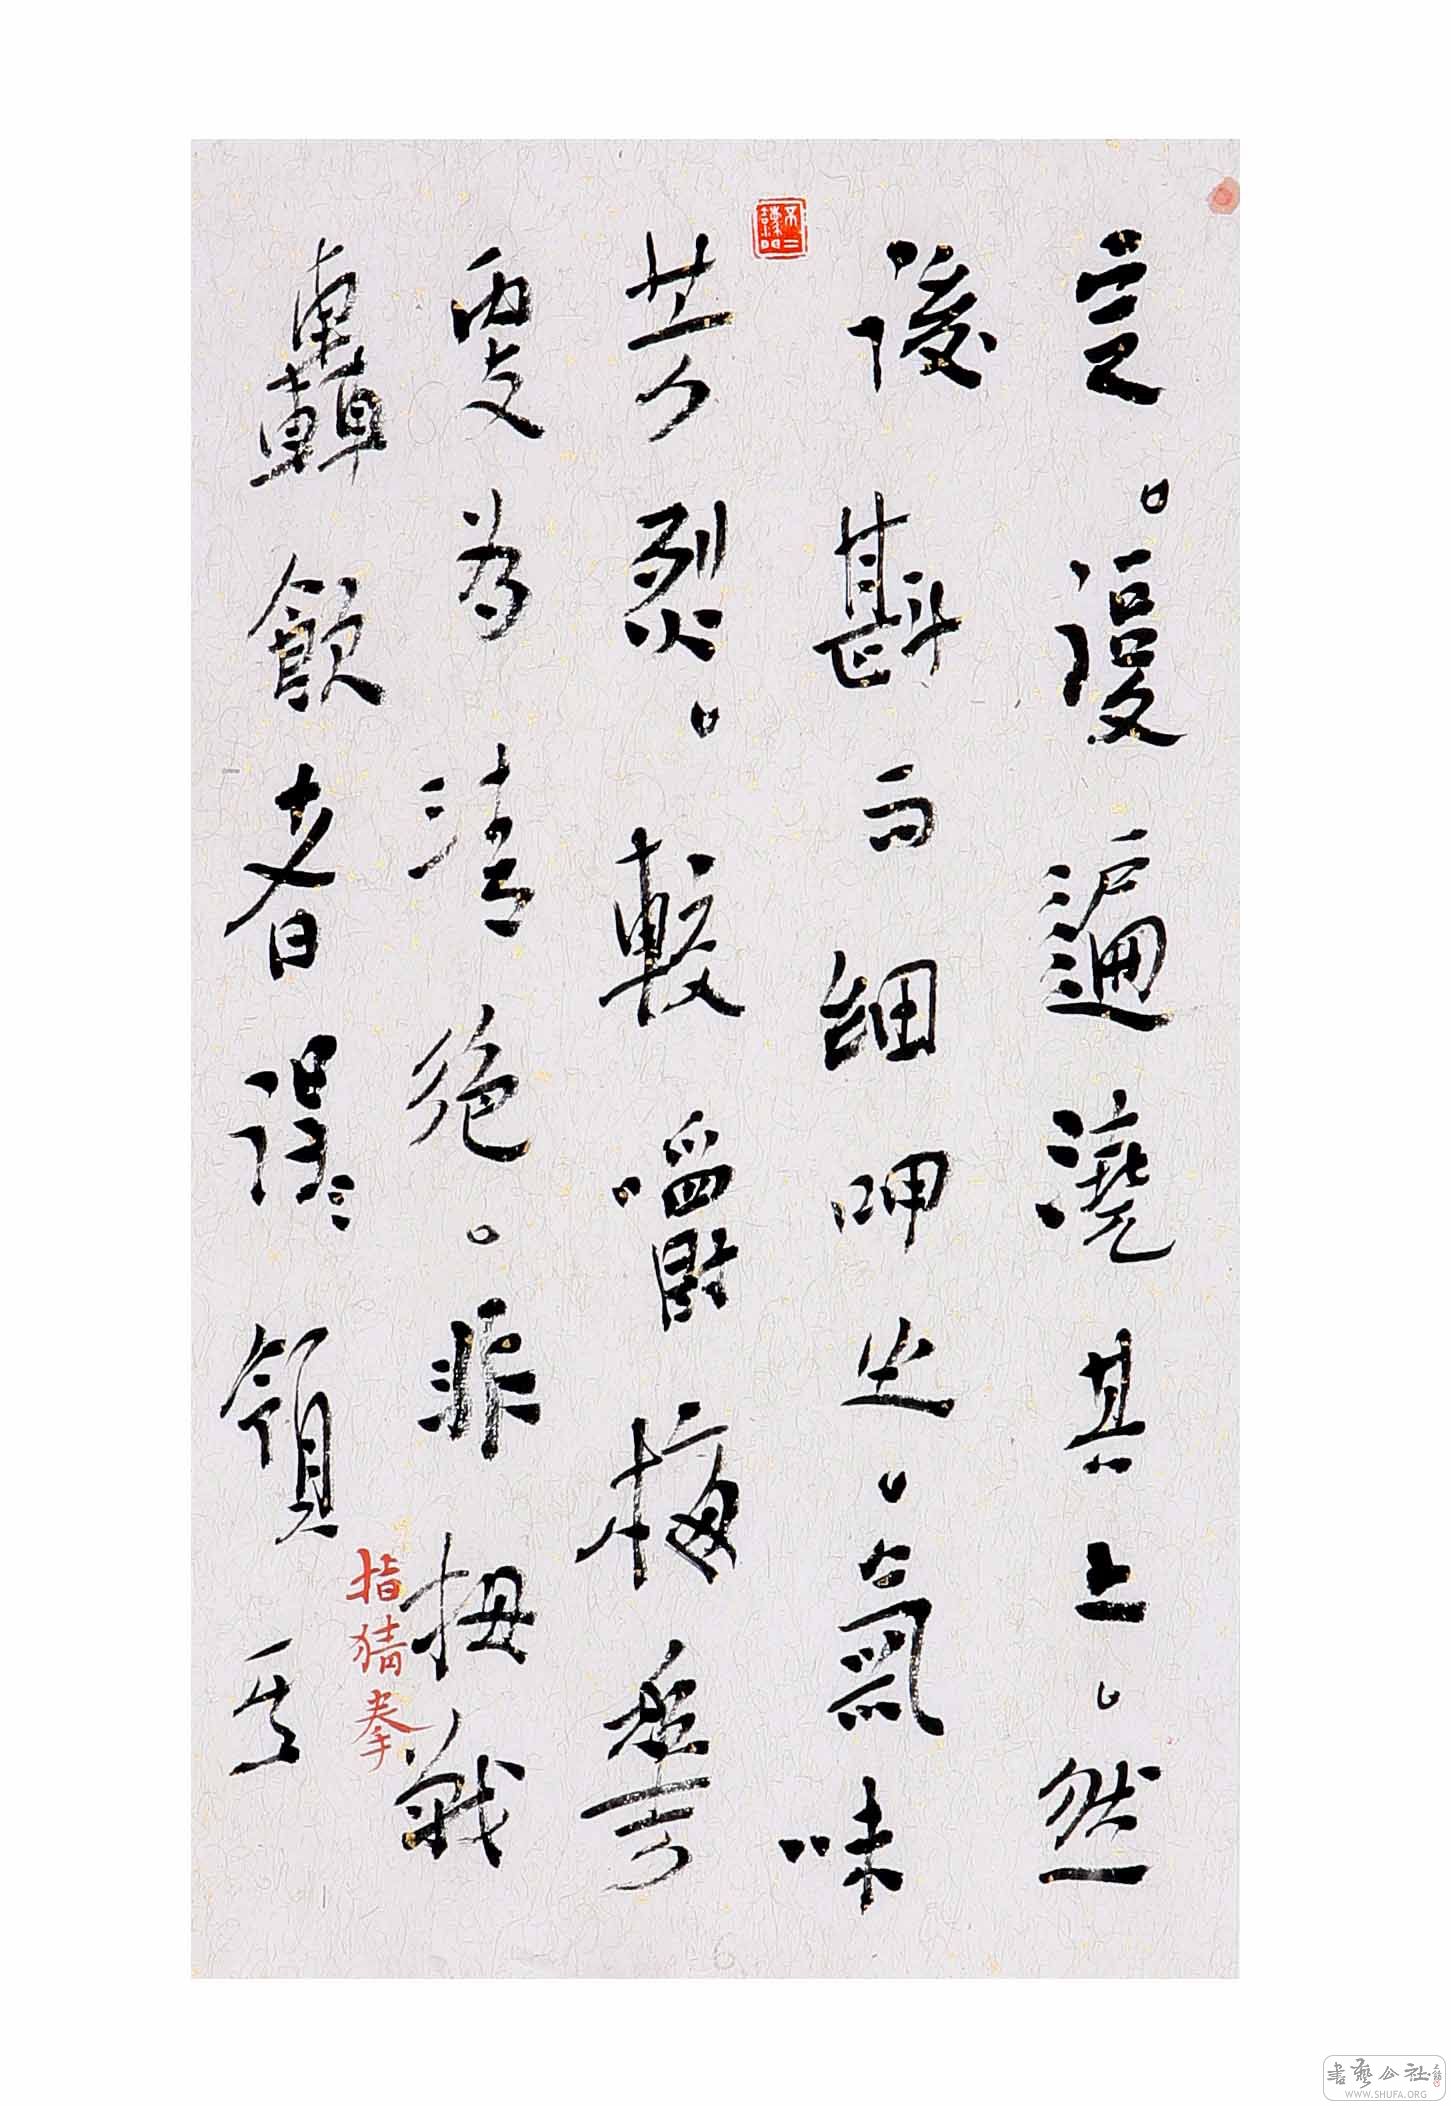 定。復遍澆其上。然
後斟而細呷之。氣味
芳烈。較嚼梅
更為清絕。非拇戰
轟飲者得領其
指猜拳
書藝公社
WWW.SHUFA.ORG